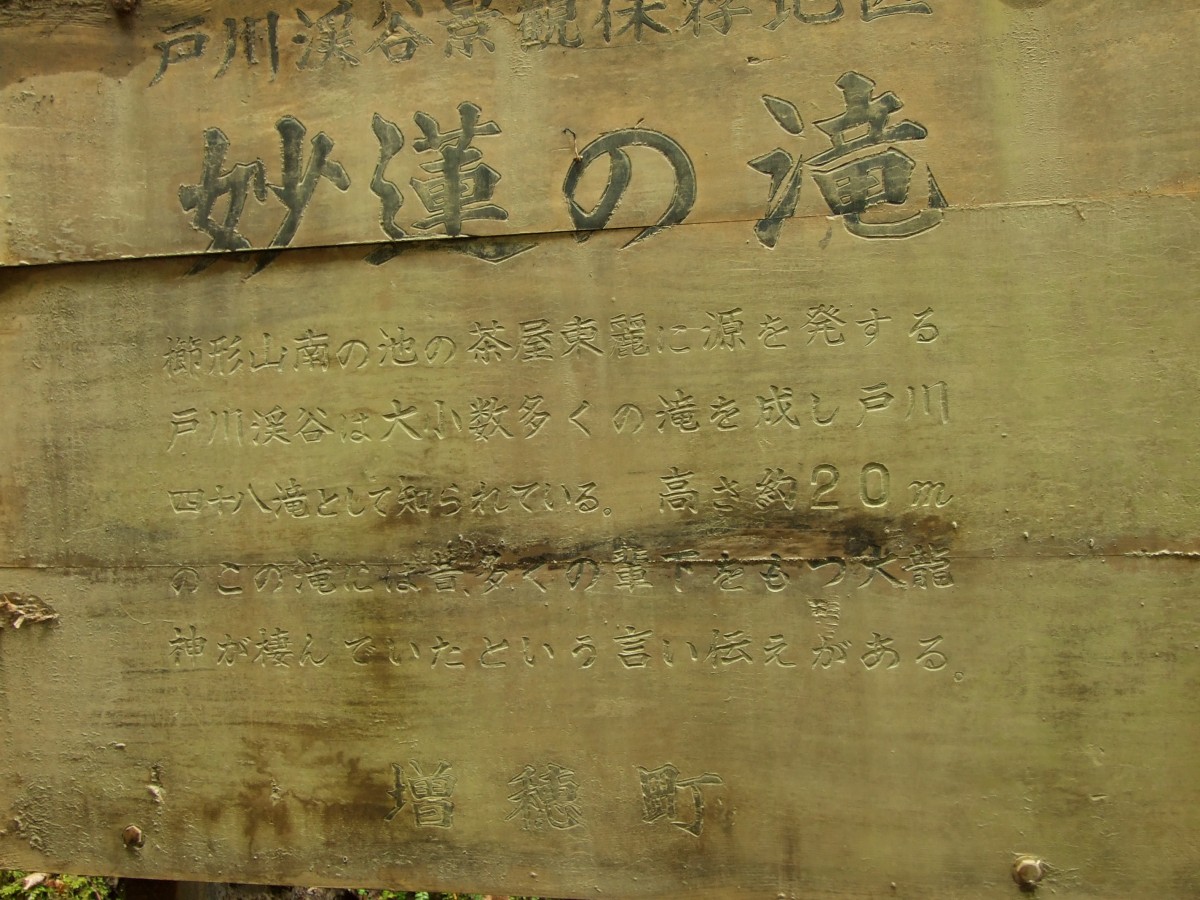 戸川渓谷景観保存地区
妙蓮の滝
櫛形山南の池の茶屋東麗に源を発する
戸川渓谷は大小数多くの滝を成し戸川
四十八滝として知られている。高さ約20m
のこの滝には昔、多くの輩下をもつ大龍
神が棲んでいたという言い伝えがある。
増穂町